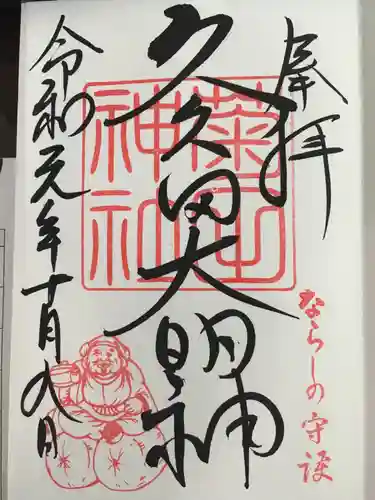 奉拝
ならしの守護
久久田大明神
菊田
神社
令和元年十月八日